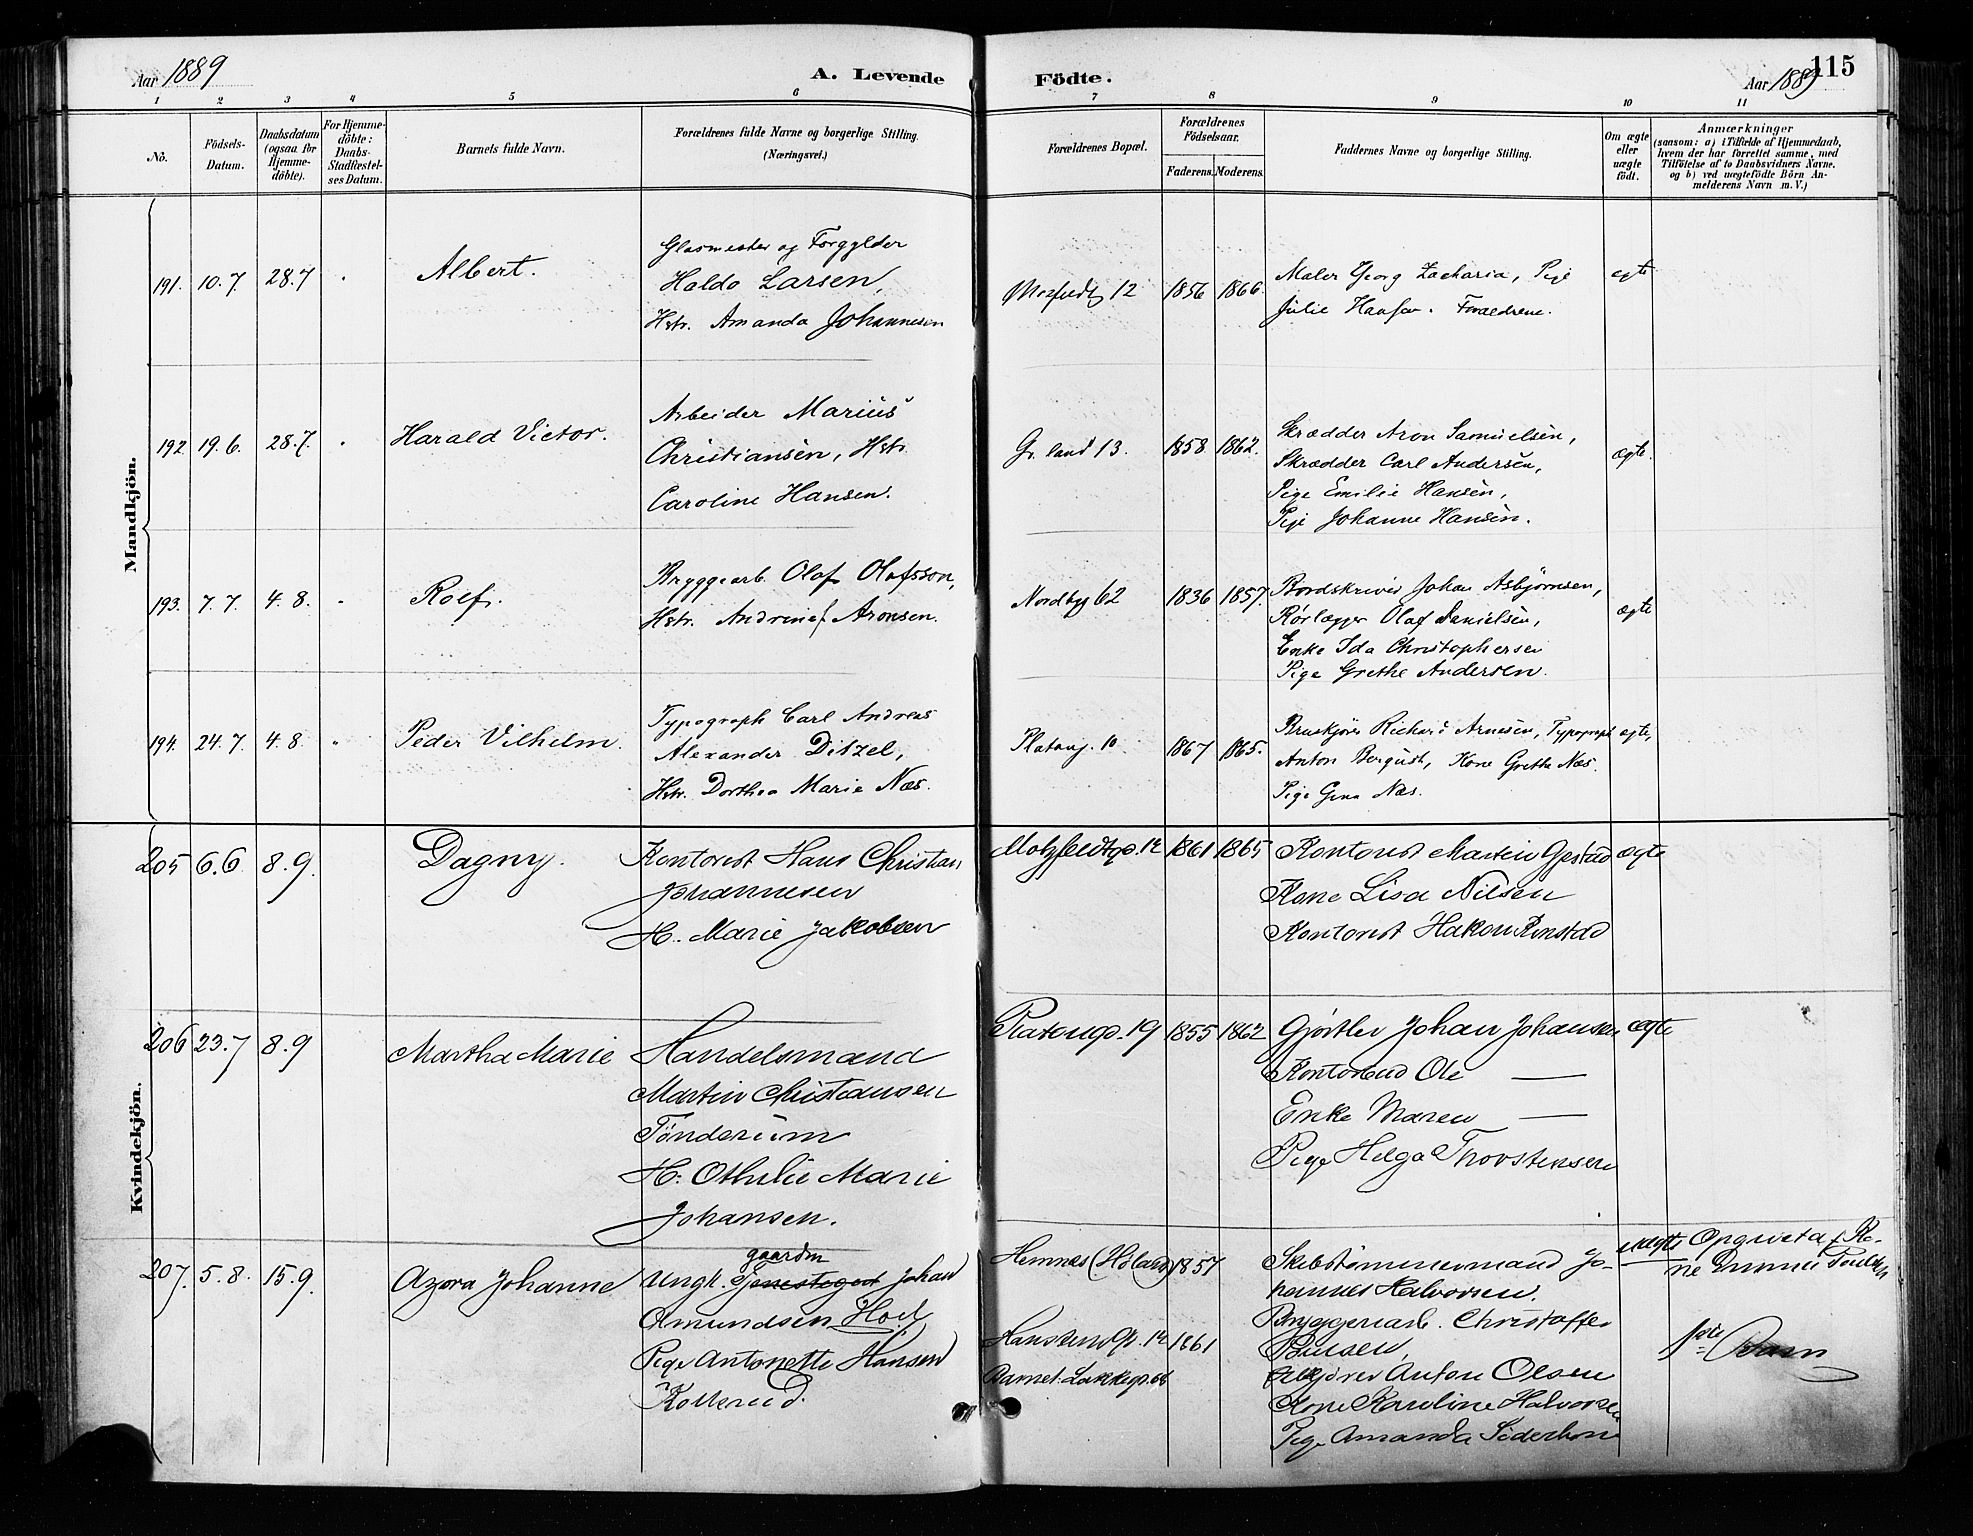 Aar 1889
A. Levende
Födte.
115
Aar 1889
1 2 3 4 5 6 7 8 9 10 11
No.
Födsels-
Datum.
Daabsdatum
(ogsaa for
Hjemme-
döbte).
For Hjemme-
döbte:
Daabs-
Stadfæstel-
ses Datum.
Barnets fulde Navn.
Forældrenes fulde Navne og borgerlige Stilling.
(Næringsvei.)
Forældrenes Bopæl.
Forældrenes
Födselsaar.
Faderens. Moderens.
Faddernes Navne og borgerlige Stilling.
Om ægte
eller
uægte
födt.
Anmærkninger
(saasom: a) i Tilfælde af Hjemmedaab,
hvem der har forrettet samme, med
Tilföielse af to Daabsvidners Navne,
og b) ved uægtefödte Börn An-
melderens Navn m. V.)
Mandkjön.
191. 10.7 28.7 Albert.
Glasmester og Forgylder
Haldo Larsen,
Hstr. Amanda Johannesen
12 1856 1866.
Maler Georg Zacharia, Pige
Julie Hansen. Forældrene.
ægte
192. 19.6. 28.7. Harald Victor.
Arbeider Marius
Christiansen, Hstr.
Caroline Hansen.
Gr. land 13. 1858 1862.
Skrædder Aron Samuelsen,
Skrædder Carl Andersen,
Pige Emilie Hansen,
Pige Johanne Hansen.
ægte.
193. 7.7. 4.8. Rolf.
Bryggearb. Olaf Olafsson,
Hstr. Andrine Aronsen.
Nordbyg 62 1836 1857.
Bordskriver Johan Asbjørnsen,
Rørlægger Olaf Danielsen,
Enke Ida Christophersen
Pige Grethe Andersen.
ægte
194. 24.7. 4.8. Peder Vilhelm.
Typograph Carl Andreas
Alexander Ditzel,
Hstr. Dorthea Marie Næs.
Platoug. 10 1867 1865.
Bruskjører Richard Arnesen, Typograph
Anton Bergust, Kone Grethe Næs.
Pige Gina Næs.
ægte,
Kvindekjön.
205 6.6 8.9. Dagny.
Kontorist Hans Christian
Johannesen
H. Marie Jakobsen
Motzfeldtgd. 12 1861 1865
Kontorist Martin Gjestad
Kone Lisa Nilsen
Kontorist Hakon
ægte
206 23.7 8.9 Martha Marie
Handelsmand
Martin Christiansen
Tönderum
H. Othilie Marie
Johansen.
Platougd. 19 1855 1862
Gjørtler Johan Johansen
Kontorbud Ole —
Enke Maren —
Pige Helga Thorstensen
ægte
207. 5.8. 15.9. Azora Johanne
gaardm
Ungk. Tjenestegut Johan
Amundsen Hoel
Pige Antonette Hansen
Kolterud.
Hemnes (Höland) 1857
1861
Barnet. Lakkegd. 66
Skibstømmermand Jo-
hannes Halvorsen.
Bryggeriarb. Christoffer
Anton Olsen
Kone Karoline Halvorsen
Pige Amanda
uægte
Opgivet af Ko-
ne Emma